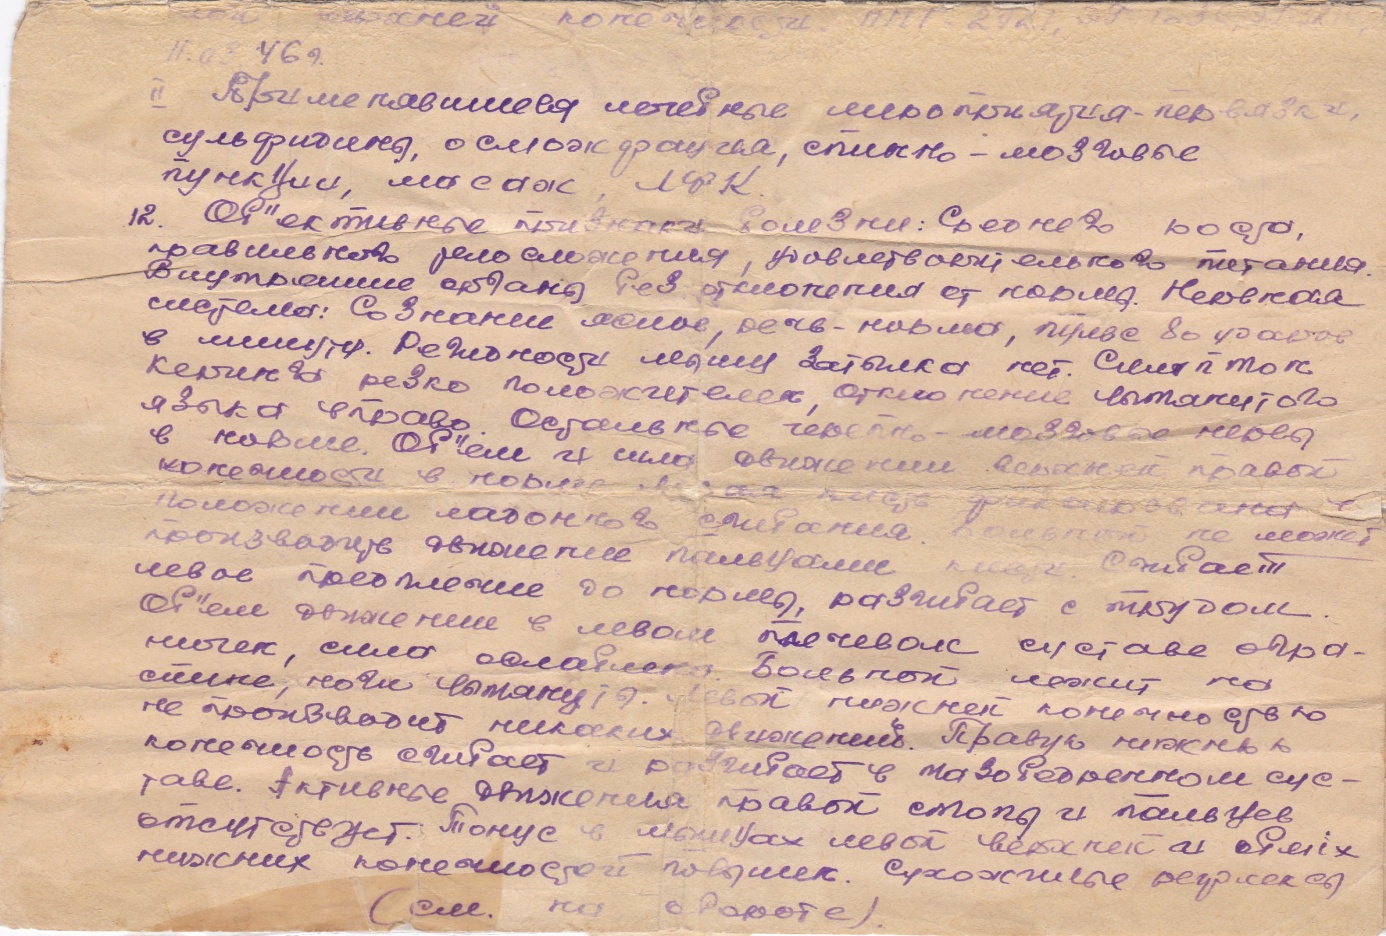 верхней конечности. ППГ 2421,
11.03.46г.
II Применявшиеся лечебные мероприятия - перевязки,
сульфидины, осмождраутья, спинно-мозговые
пункции, масаж, ЛФК.
12. Об"ективные признаки болезни: Среднего роста,
правильного телосложения, удовлетворительного питания.
Внутренние органы без отклонения от нормы. Нервная
система: Сознание ясное, речь - норма, пульс 80 ударов
в минуту. Регидности мышц затылка нет. Симптом
Кернига резко положителен, отклонение вытянутого
языка вправо. Остальные черепно-мозговые нервы
в норме. Об"ем и сила движении верхней правой
конечности в норме. Левая кисть фиксирована в
положении ладонного сгибания. Больной не может
производить движение пальцами кисти. Сгибает
левое предплечие до нормы, разгибает с трудом.
Об"ем движении в левом плечевом суставе огра-
ничен, сила ослаблена. Больной лежит на
спине, ноги вытянуты. Левой нижней конечностью
не производит никаких движений. Правую нижнюю
конечность сгибает и разгибает в тазобедренном сус-
таве. Активные движения правой стопы и пальцев
отсутствуют. Тонус в мышцах левой верхней и обеих
нижних конечностей повышен. Сухожилые рефлексы
(см. на обороте)